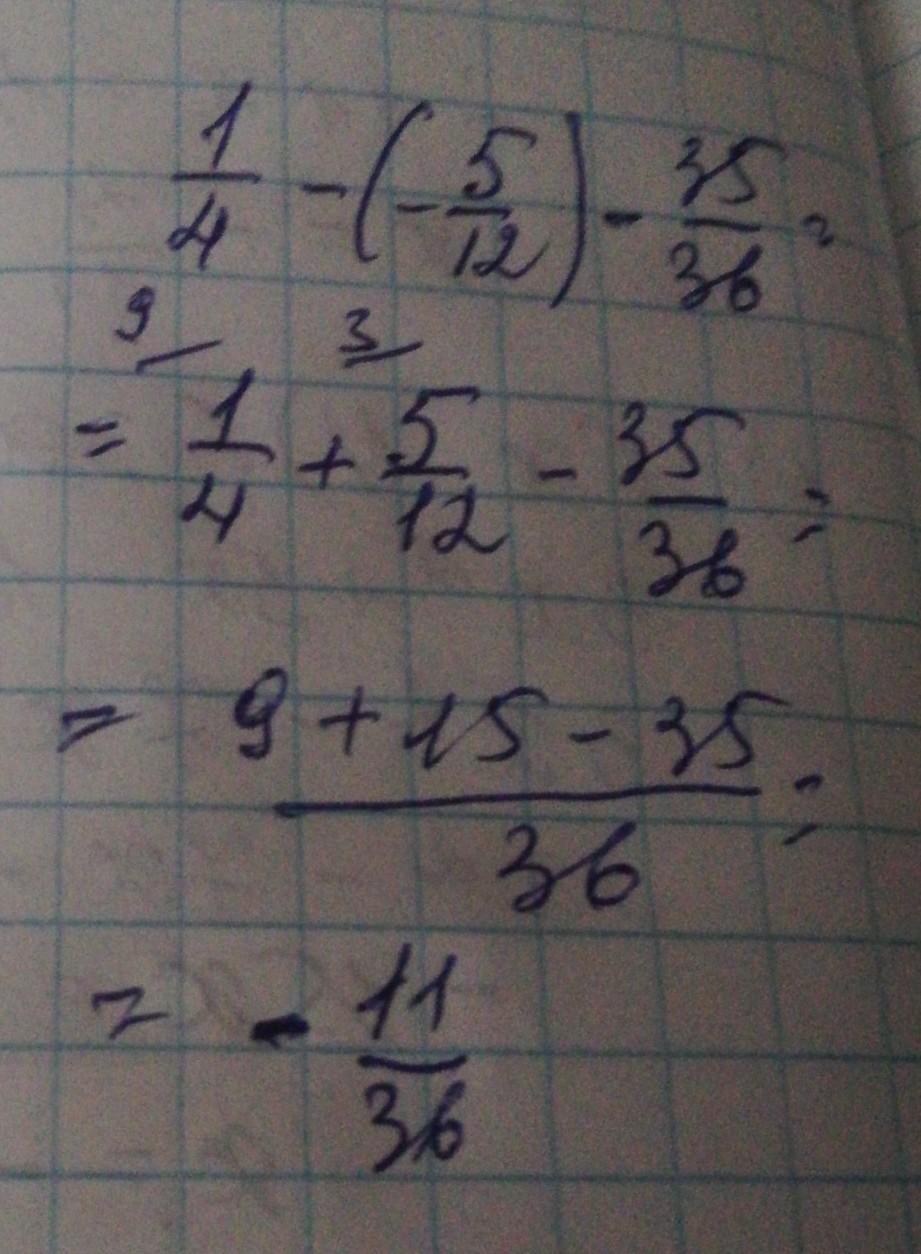 1/4 - (-5/12) - 35/36 =
9 3
= 1/4 + 5/12 - 35/36 =
= (9 + 15 - 35)/36 =
= - 11/36